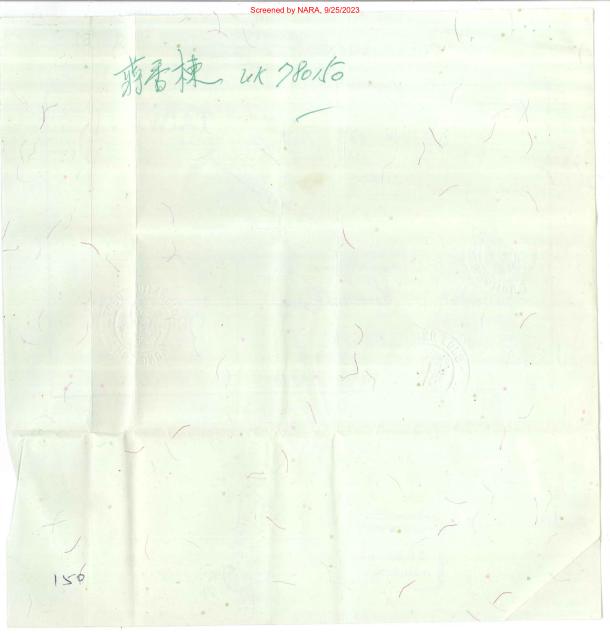 Screened by NARA, 9/25/2023
蒋香棟 UK 780150
150